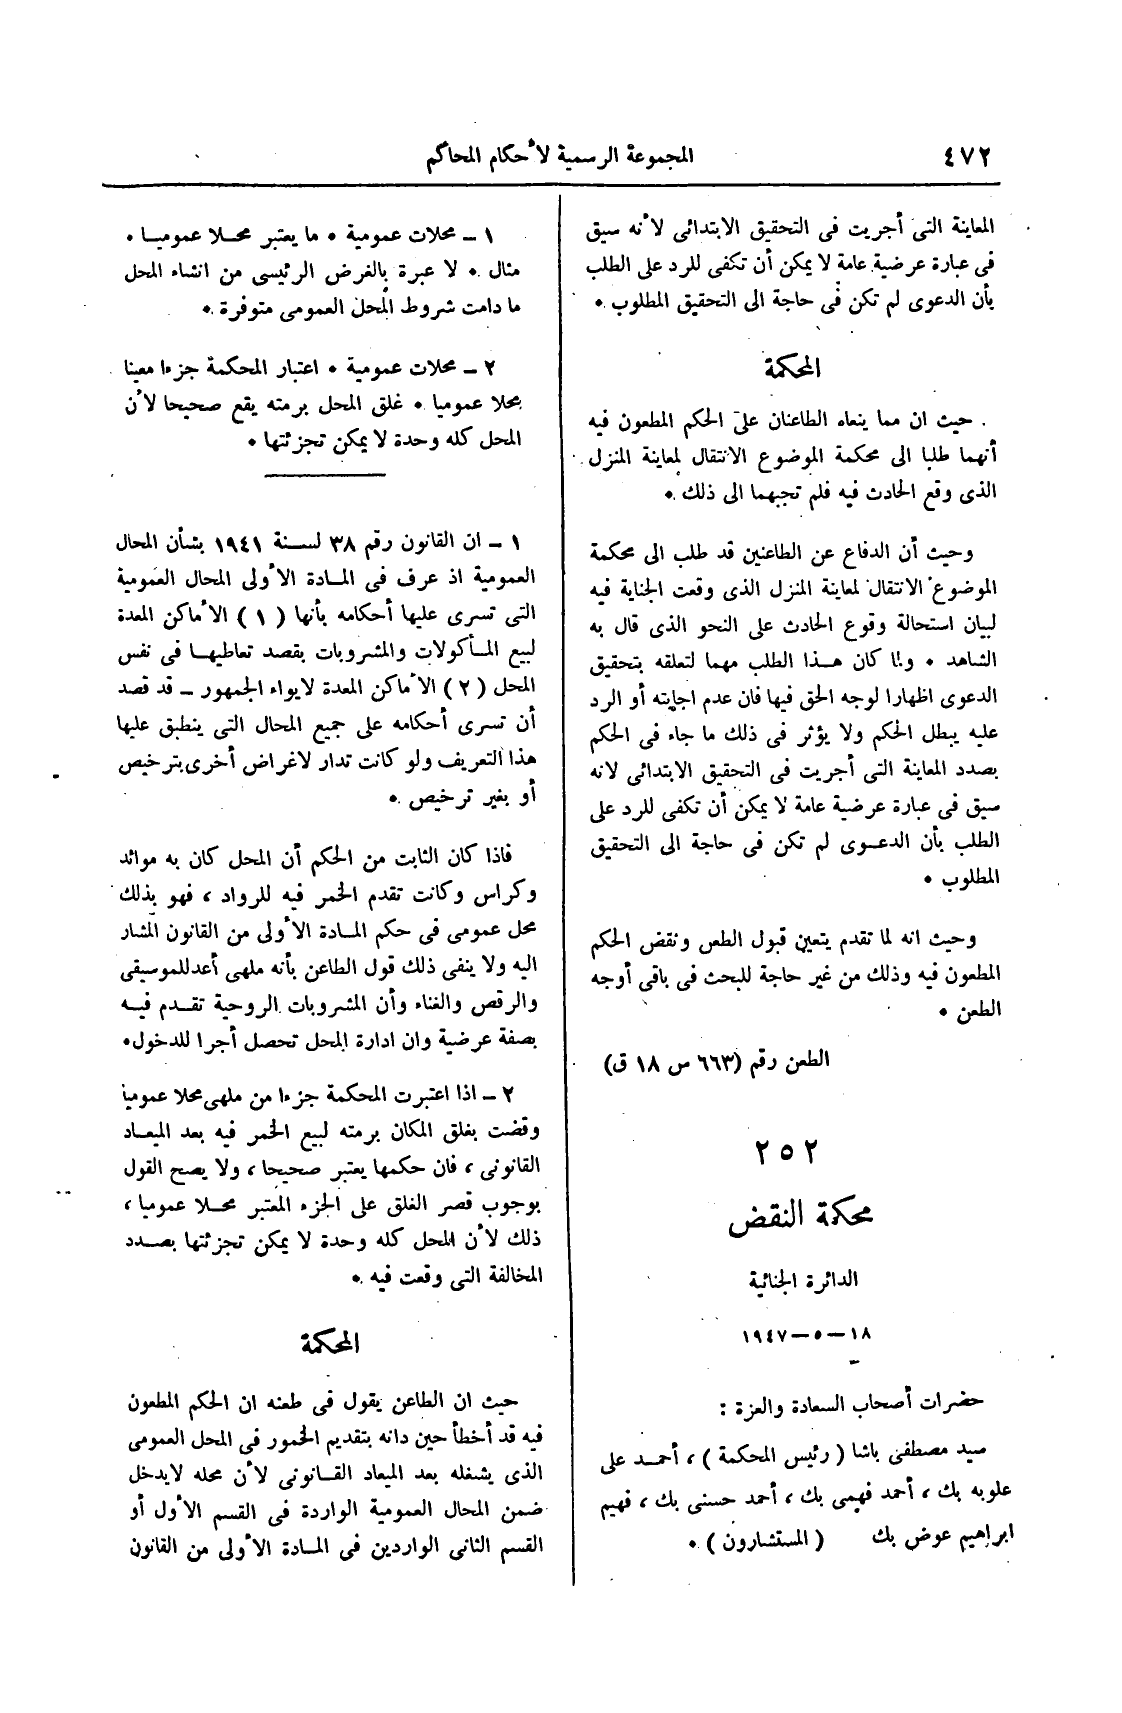 ٤٧٢
المجموعة الرسمية لأحكام المحاكم
المعاينة التى أجريت فى التحقيق الابتدائى لأنه سيق
فى عبارة عرضية عامة لا يمكن أن تكفى للرد على الطلب
بأن الدعوى لم تكن فى حاجة الى التحقيق المطلوب .
المحكمة
حيث ان مما ينعاه الطاعنان على الحكم المطعون فيه
أنهما طلبا الى محكمة الموضوع الانتقال لمعاينة المنزل
الذى وقع الحادث فيه فلم تجبهما الى ذلك .
وحيث أن الدفاع عن الطاعنين قد طلب الى محكمة
الموضوع الانتقال لمعاينة المنزل الذى وقعت الجناية فيه
لبيان استحالة وقوع الحادث على النحو الذى قال به
الشاهد . ولما كان هذا الطلب مهما لتعلقه بتحقيق
الدعوى اظهارا لوجه الحق فيها فان عدم اجابته أو الرد
عليه يبطل الحكم ولا يؤثر فى ذلك ما جاء فى الحكم
بصدد المعاينة التى أجريت فى التحقيق الابتدائى لانه
سيق فى عبارة عرضية عامة لا يمكن أن تكفى للرد على
الطلب بأن الدعوى لم تكن فى حاجة الى التحقيق
المطلوب .
وحيث انه لما تقدم يتعين قبول الطعن ونقض الحكم
المطعون فيه وذلك من غير حاجة للبحث فى باقى أوجه
الطعن .
الطعن رقم (٦٦٣ س ١٨ ق)
٢٥٢
محكمة النقض
الدائرة الجنائية
١٨ – ٥ – ١٩٤٧
حضرات أصحاب السعادة والعزة :
سيد مصطفى باشا ( رئيس المحكمة ) ، أحمد على
علوبه بك ، أحمد فهمى بك ، أحمد حسنى بك ، فهيم
ابراهيم عوض بك ( المستشارون ) .
١ – محلات عمومية . ما يعتبر محلا عموميا .
مثال . لا عبرة بالغرض الرئيسى من انشاء المحل
ما دامت شروط المحل العمومى متوفرة .
٢ – محلات عمومية . اعتبار المحكمة جزءا معينا
محلا عموميا . غلق المحل برمته يقع صحيحا لأن
المحل كله وحدة لا يمكن تجزئتها .
١ – ان القانون رقم ٣٨ لسنة ١٩٤١ بشأن المحال
العمومية اذ عرف فى المادة الأولى المحال العمومية
التى تسرى عليها أحكامه بأنها (١) الأماكن المعدة
لبيع المأكولات والمشروبات بقصد تعاطيها فى نفس
المحل (٢) الأماكن المعدة لايواء الجمهور – قد قصد
أن تسرى أحكامه على جميع المحال التى ينطبق عليها
هذا التعريف ولو كانت تدار لاغراض أخرى بترخيص
أو بغير ترخيص .
فاذا كان الثابت من الحكم أن المحل كان به موائد
وكراس وكانت تقدم الخمر فيه للرواد ، فهو بذلك
محل عمومى فى حكم المادة الأولى من القانون المشار
اليه ولا ينفى ذلك قول الطاعن بأنه ملهى أعد للموسيقى
والرقص والغناء وأن المشروبات الروحية تقدم فيه
بصفة عرضية وان ادارة المحل تحصل أجرا للدخول .
٢ – اذا اعتبرت المحكمة جزءا من ملهى محلا عموميا
وقضت بغلق المكان برمته لبيع الخمر فيه بعد الميعاد
القانونى ، فان حكمها يعتبر صحيحا ، ولا يصح القول
بوجوب قصر الغلق على الجزء المعتبر محلا عموميا ،
ذلك لأن المحل كله وحدة لا يمكن تجزئتها بصدد
المخالفة التى وقعت فيه .
المحكمة
حيث ان الطاعن يقول فى طعنه ان الحكم المطعون
فيه قد أخطأ حين دانه بتقديم الخمور فى المحل العمومى
الذى يشغله بعد الميعاد القانونى لأن محله لا يدخل
ضمن المحال العمومية الواردة فى القسم الأول أو
القسم الثانى الواردين فى المادة الأولى من القانون